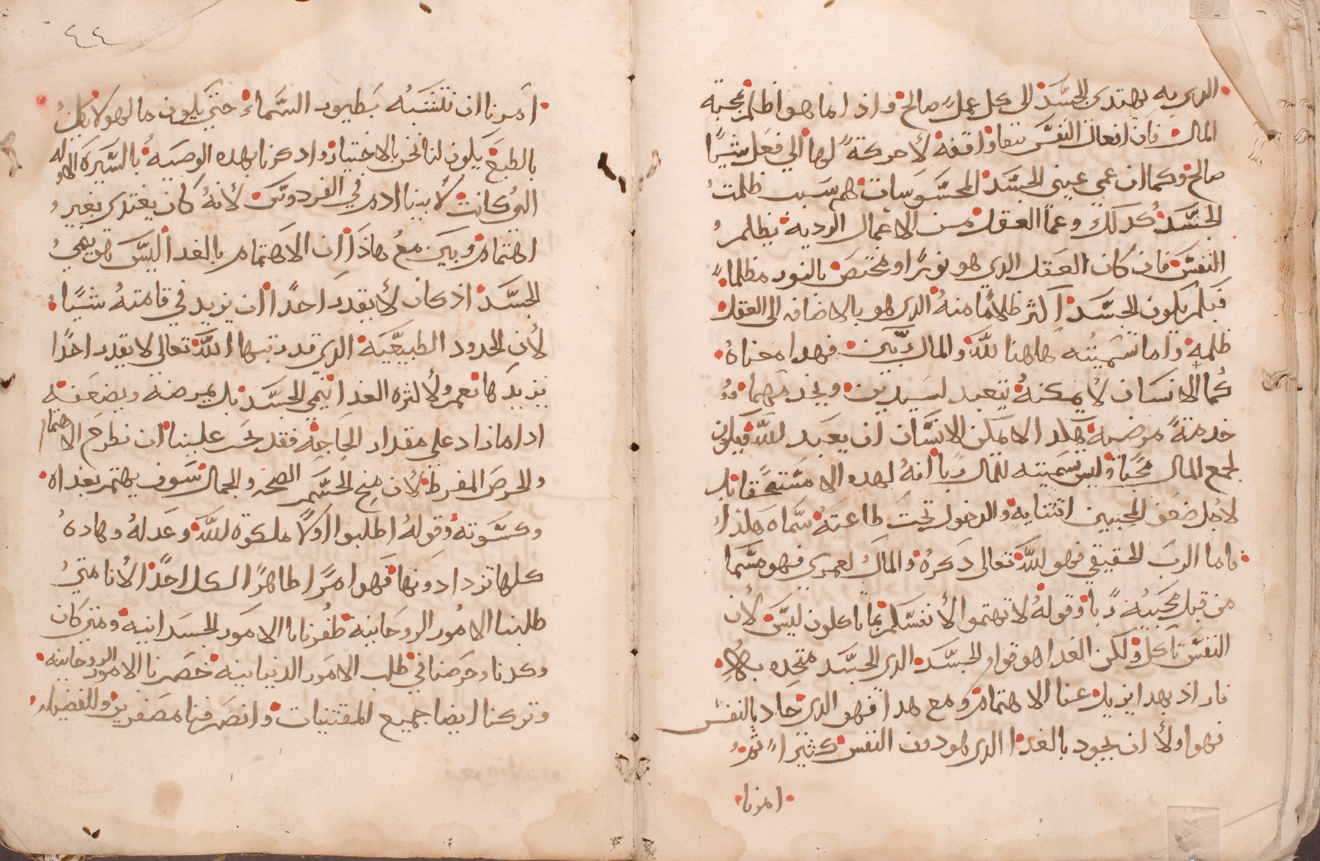 الدي به يهتدي الجسَد الى كل عمل صالح واذا ما هو اظلم بمحبة
المال فان افعال النفسَ تبقا واقفة لا حركةً لها الى فعل شيًا
صالح وكما ان عمي عيني الجسَد المحسَوسات هم سَبب ظلمت
الجسَد كدلك وعما العقل من الاعمال الرديه يظلم
النفسَ فان كان العقل الدي هو نورًا ومختصَ بالنور مظلمًا
فكم يكون الجسَد اكثر ظلامًا منهُ الدي هو بالاضافه الى العقل
ظلمه واما تسَميته هاهنا للهَ والمال ربين فهدا معناهُ
كما الانسَان لا يمكنهُ يتعبد لسَيدين ويخدمهما
خدمةً مرضيه هكدا لا يمكن الانسَان ان يعبَد للهَ ويكون
لجمع المال محبًا وليسَ تسَميته للمال ربًا انهُ لهدا الاسم مستحقًا بل
لاجل ضعف المحبين اقتنايه والدخول تحت طاعتهُ سَماه هكدا
فاما الربَ الحقيقي فهو للهَ تعالى دكرهُ والمالَ لعمري فهو مسَما
من قبل محبيهُ ربًا وقولهُ لا تهتموا لانفسَكم بما تاكلون ليسَ لان
النفسَ تاكل ولكن الغدا هو قوام الجسَد الدي للجسَد متحده بها
فاراد بهدا يزيل عنا الاهتمام ومع هدا فهو الدي جاد بالنفس
فهو اولا ان يجود بالغدا الدي هو دون النفس كثيرًا ثم
امرنا
٤٤
امرنا ان نتشبَه بَطيور السَماء حتى يكون ما لهولاي كلُ
بالطبع يكون لنا نحن بالاختيار وادكرنا بهده الوصيه بالسَيرة الاوله
التي كانت لابينا ادم في الفردوسَ لانهُ كان يغتدي بغير
اهتمام وبين معُ هادا ان الاهتمام بالغدا ليسَ هو ينمي
الجسَد اد كان لا يقدر احدًا ان يزيد في قامتهُ شيًا
لان الحدود الطبيعَيَه الدي قد رتبها اللهَ تعالى لا يقدر احدًا
يزيدها نعم ولا كثرة الغدا ينمي الجسَد بل يمرضه ويضعفه
ادا ما زاد على مقدار الحاجه فقد يجَب علينا ان نطرح الاهتمام
والحرصَ المفرط لان من منح الجسَم الصحه والجمال سَوف يهتم بغداه
وكسَوته وقولهُ اطلبوا اولًا ملكوة للهَ وعدلهُ وهادهُ
كلها تزدادونها فهو امرًا ظاهرًا لكل احدًا لاننا متى
طلبنا الامُور الروحانيه ظفرنا بالامور الجسَدانيه ومتى كان
وكدنا وحرصنا في طلب الامَور الدنيانيه خسَرنا الامور الروحانيه
وتركنا ايضا جميع المقتنيات وانصرفنا مصفرين وللفضيله